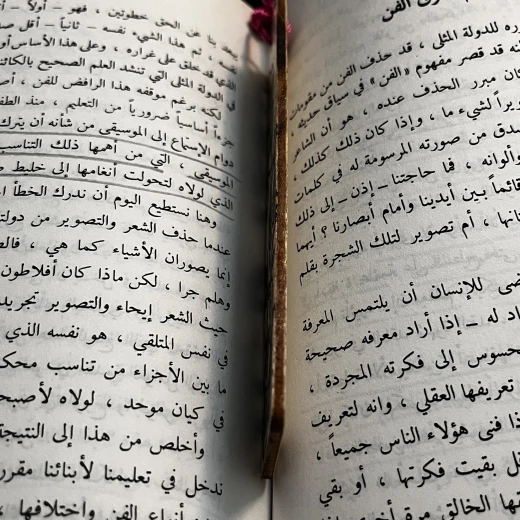 ـوق الفن
ـوره للدولة المثلى ، قد حذف الفن من مقومات
ـه قد قصر مفهوم « الفن » في سياق حديثه ،
ـكان مبرر الحذف عنده ، هو أن الشاعر
ـزيراً لشيء ما ، وإذا كان ذلك كذلك ،
ـصدق من صورته المرسومة له في كلمات
وألوانه ، فما حاجتنا – إذن – إلى ذلك
قائماً بين أيدينا وأمام أبصارنا ؟ أيهما
ـتانها ، أم تصوير لتلك الشجرة بقلم
ـضى للإنسان أن يلتمس المعرفة
ـاد له – إذا أراد معرفه صحيحة
ـحسوس إلى فكرته المجردة ،
تعريفها العقلي ، وانه لتعريف
ـذا فنى هؤلاء الناس جميعاً ،
ـل بقيت فكرتها ، أو بقي
ـها الخالق مرة أخرى
يبعد بنا عن الحق خطوتين ، فهو – أولاً –
نفسه ، ثم هذا الشيء نفسه – ثانياً – أقل
الذي خلق على غراره ، وعلى هذا الأساس
في الدولة المثلى التي تنشد العلم الصحيح بالكائنات
لكنه برغم موقفه هذا الرافض للفن ،
جزءاً أساسياً ضرورياً من التعليم ، منذ
دوام الإستماع إلى الموسيقى من شأنه أن يترك
الموسيقى ، التي من أهمها ذلك التناسب
الذي لولاه لتحولت أنغامها إلى خليط
وهنا نستطيع اليوم أن ندرك الخطأ
عندما حذف الشعر والتصوير من دولته
إنما يصوران الأشياء كما هي ،
وهلم جرا ، لكن ماذا كان أفلاطون
حيث الشعر إيحاء والتصوير تجريد
في نفس المتلقي ، هو نفسه الذي
ما بين الأجزاء من تناسب محكم
في كيان موحد ، لولاه لأصبح
وأخلص من هذا إلى النتيجة
ندخل في تعليمنا لأبنائنا مقرر
أنواع الفن واختلافها ،